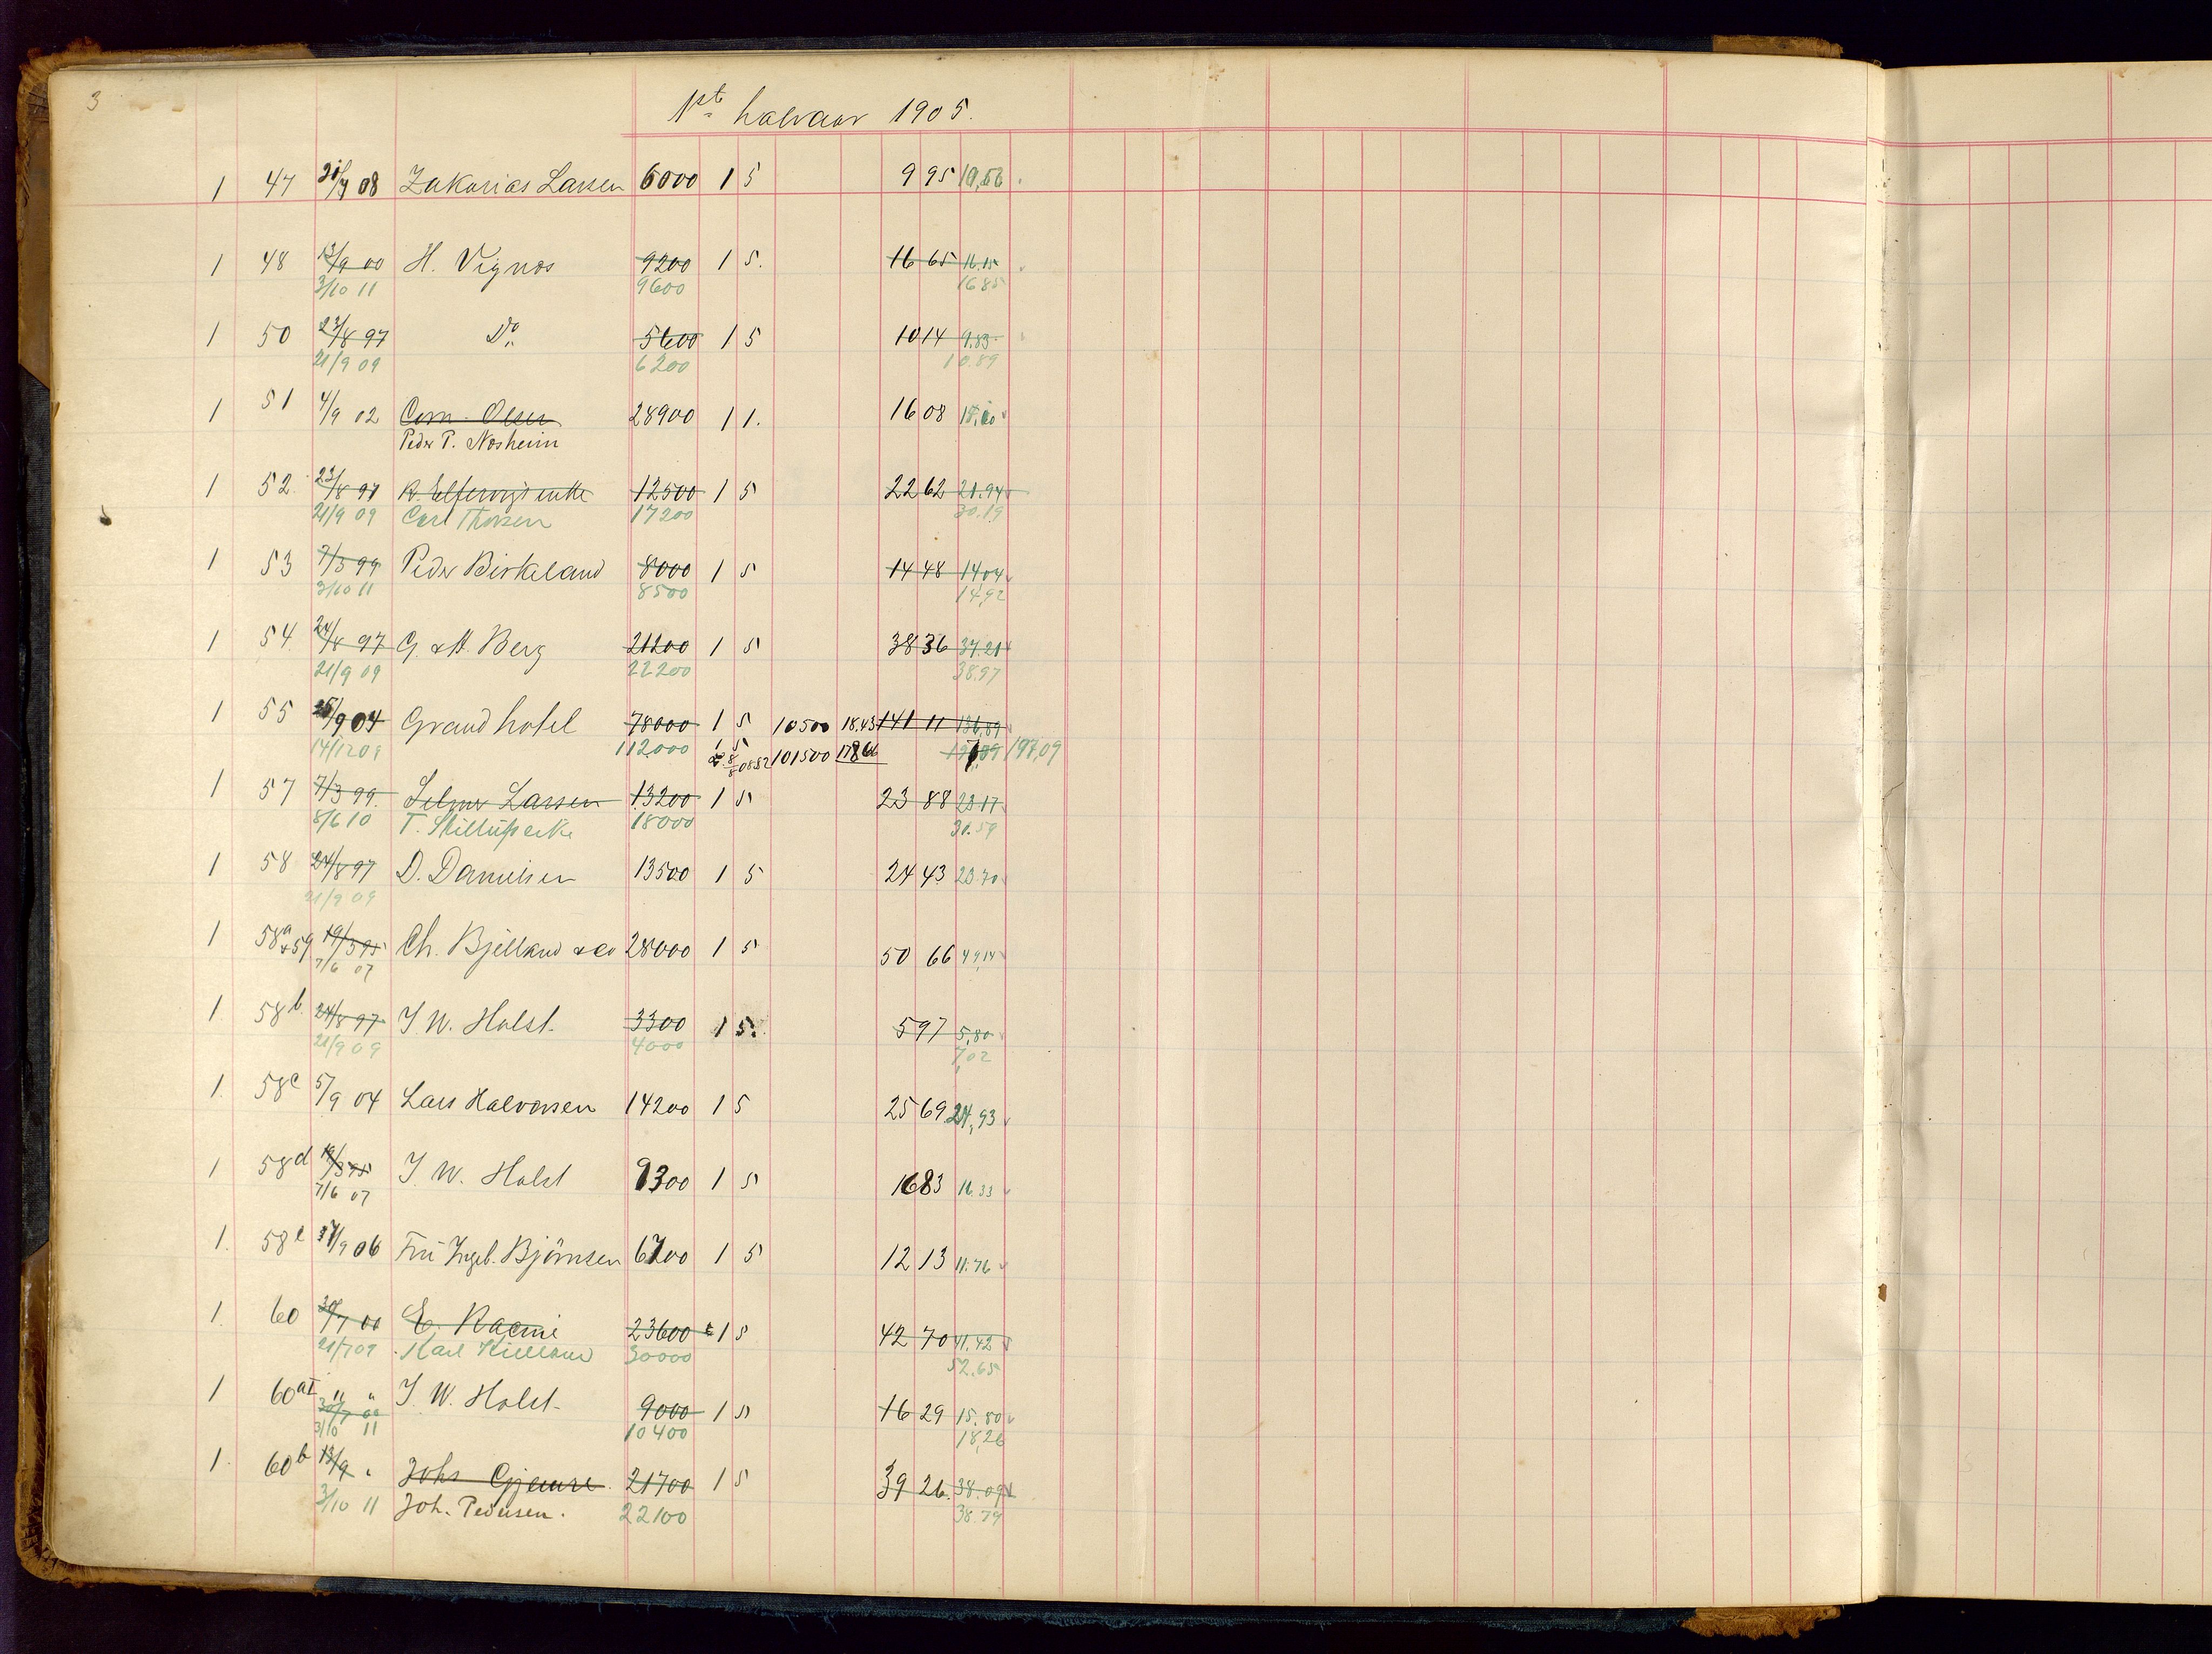 3
1st halvaar 1905.
1 47 08 Zakarias Larsen 6000 1 5 9 95
1 48 13/9 00 H. Vignæs 9200 1 5. 16 65 16.15
3/10 11 9600 16.85
1 50 23/8 97 Do 5600 1 5 10 14 9.83
21/9 09 6200 10.89
1 51 4/9 02 Corn. Olsen 28900 1 1. 16 08
Peder P. Nosheim
1 52. 23/8 97 12500 1 5 22 62 21.94
21/9 09 Carl Thorsen 17200 30.19
1 53 7/3 99 Peder Birkeland 8000 1 5 14 48 14.04
3/10 11 8500 14,92
1 54. 24/8 97 G. & H. Berg 21200 1 5 38 36
21/9 09 22200 38.97
1 55 9 04 Grand hotel 78000 1 5 10500 18.43 141 11 136,89
14/12 09 112000 1 5 101500 178 66 197,09
1 57 7/3 99. Larsen 13200 1 5 23 88 23.17
8/6 10 18000 31.59
1 58 24/8 97 D. Danielsen 13500 1 5 24 43 23.70
21/9 09
1 58a & 59 19/3 95 Ch. Bjelland & Co 28000 1 5 50 66 49,14
7/6 07
1 58b. 24/8 97 J. W. Holst. 3300 1 5. 5 97 5,80
21/9 09 4000 7,02
1. 58c 5/9 04 Lars Halvorsen 14200 1 5 25 69 24,93
1 58d 19/3 95 J. W. Holst 9300 1 5 16 83 16.33
7/6 07
1. 58e 9 06 Fru Ingeb. Björnsen 6700 1 5 12 13 11.76
1. 60 30/7 00 E. 23600 1 5 42 70 41,42
21/7 09 Karl Kielland 30000 52.65
1 60aI " " J. W. Holst 9000 1 5 16 29 15.80
30/7 00
3/10 11 10400 18,26
1. 60b 13/9 " Johs Gjemre. 21700 1 5 39 26. 38.09
3/10 11 Joh. Pedersen. 22100 38.79